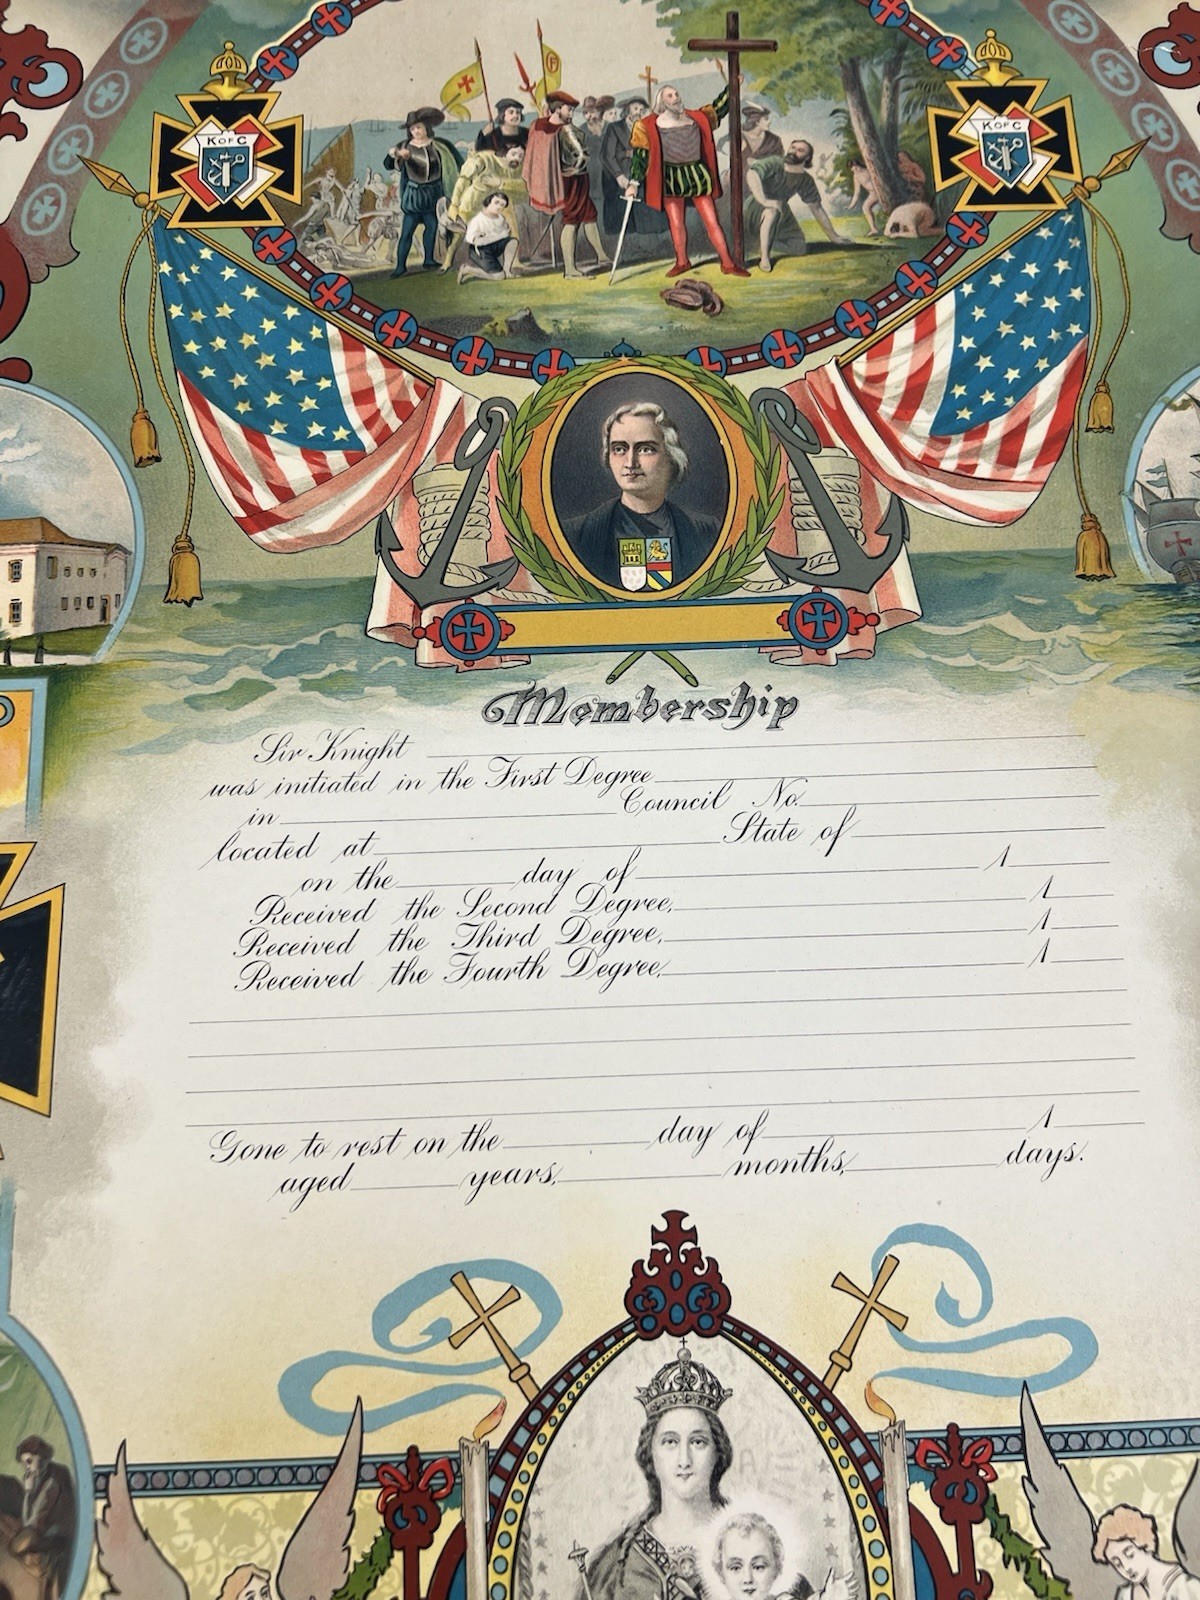 K OF C
K OF C
Membership
Sir Knight
was initiated in the First Degree
in Council No.
located at State of
on the day of 1
Received the Second Degree, 1
Received the Third Degree, 1
Received the Fourth Degree, 1
Gone to rest on the day of 1
aged years, months, days.